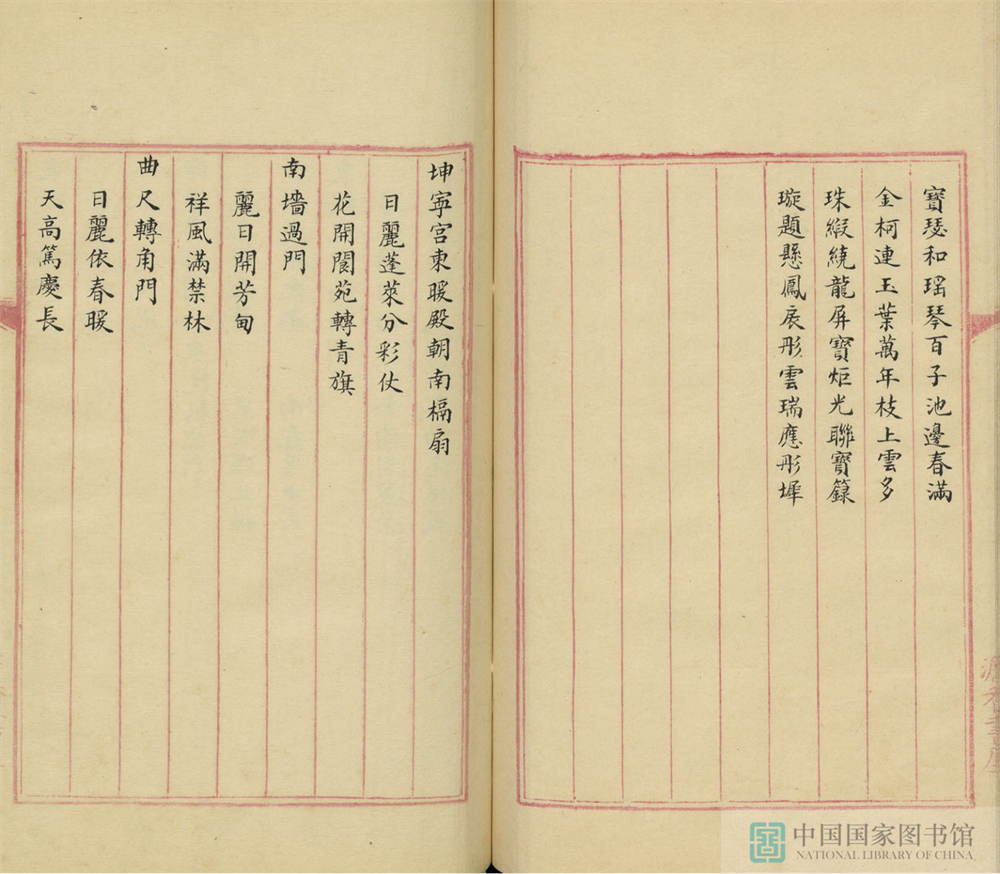 寶瑟和瑶琴百子池邊春滿
金柯連玉葉萬年枝上雲多
珠緞繞龍屏寶炬光聯寶籙
璇題懸鳳扆彤雲瑞應彤墀
坤寧宮東暖殿朝南槅扇
日麗蓬萊分彩仗
花開閬苑轉青旗
南墻過門
麗日開芳甸
祥風滿禁林
曲尺轉角門
日麗依春暖
天高篤慶長
中国国家图书馆
NATIONAL LIBRARY OF CHINA